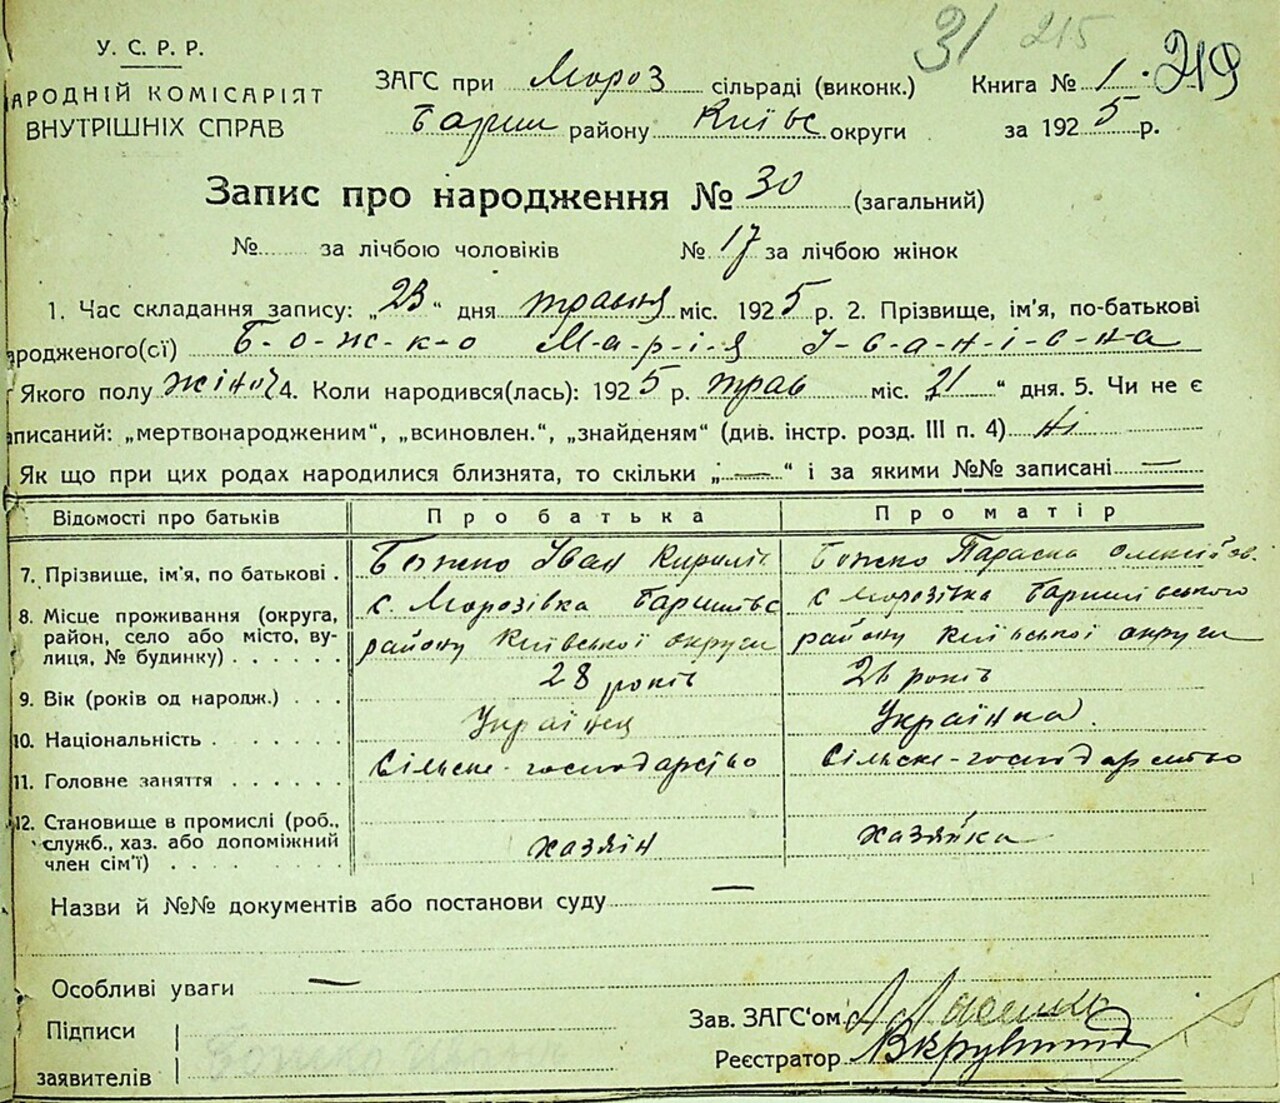 31 215 219
У. С. Р. Р.
АРОДНІЙ КОМІСАРІЯТ
ВНУТРІШНІХ СПРАВ
ЗАГС при Мороз сільраді (виконк.) Книга № 1
Бариш району Київс округи за 1925 р.
Запис про народження № 30 (загальний)
№ за лічбою чоловіків № 17 за лічбою жінок
1. Час складання запису: „23“ дня травня міс. 1925 р. 2. Прізвище, ім'я, по-батькові
ародженого(сї) Б-о-ж-к-о М-а-р-і-я І-в-а-н-і-в-н-а
Якого полу жіноч 4. Коли народився(лась): 1925 р. трав міс. „21“ дня. 5. Чи не є
аписаний: „мертвонародженим“, „всиновлен.“, „знайденям“ (див. інстр. розд. III п. 4) Ні
Як що при цих родах народилися близнята, то скільки „—“ і за якими №№ записані —
Відомості про батьків Про батька Про матір
7. Прізвище, ім'я, по батькові . Божко Іван Кирилів Божко Параска Олексійов.
8. Місце проживання (округа, район, село або місто, вулиця, № будинку) . . . . . . с. Морозівка Баришівс району Київської округи с Морозівка Баришівського району Київської округи
9. Вік (років од народж.) . . . 28 років 26 років
10. Національність . . . . . . . Українец Українка.
11. Головне заняття . . . . . . Сільске-господарство Сільске-господарство
12. Становище в промислі (роб., служб., хаз. або допоміжний член сім'ї) . . . . . . . . хазяїн хазяйка
Назви й №№ документів або постанови суду —
Особливі уваги —
Підписи
заявителів
Зав. ЗАГС'ом
Реєстратор